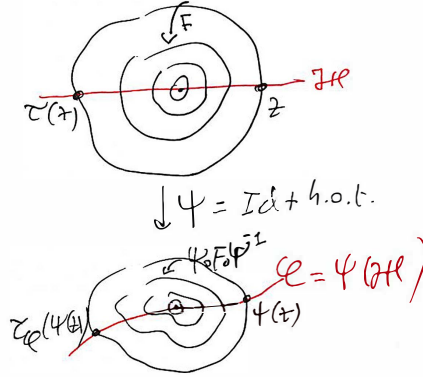 F
ℋ
τ(z) z
↓ Ψ = Id + h.o.t.
Ψ∘F∘Ψ⁻¹
𝒞 = Ψ(ℋ)
τ𝒞(Ψ(z)) Ψ(z)